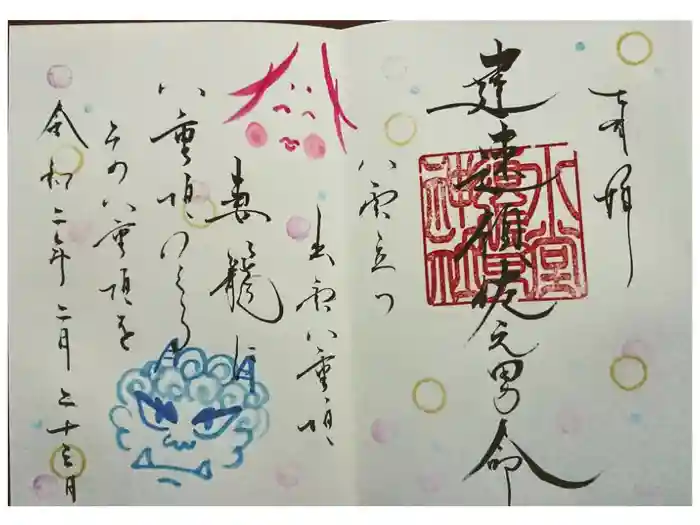 奉拝
建速須佐之男命
八雲立つ
出雲八重垣
妻籠に
八重垣つくる
その八重垣を
令和二年 二月 二十三日